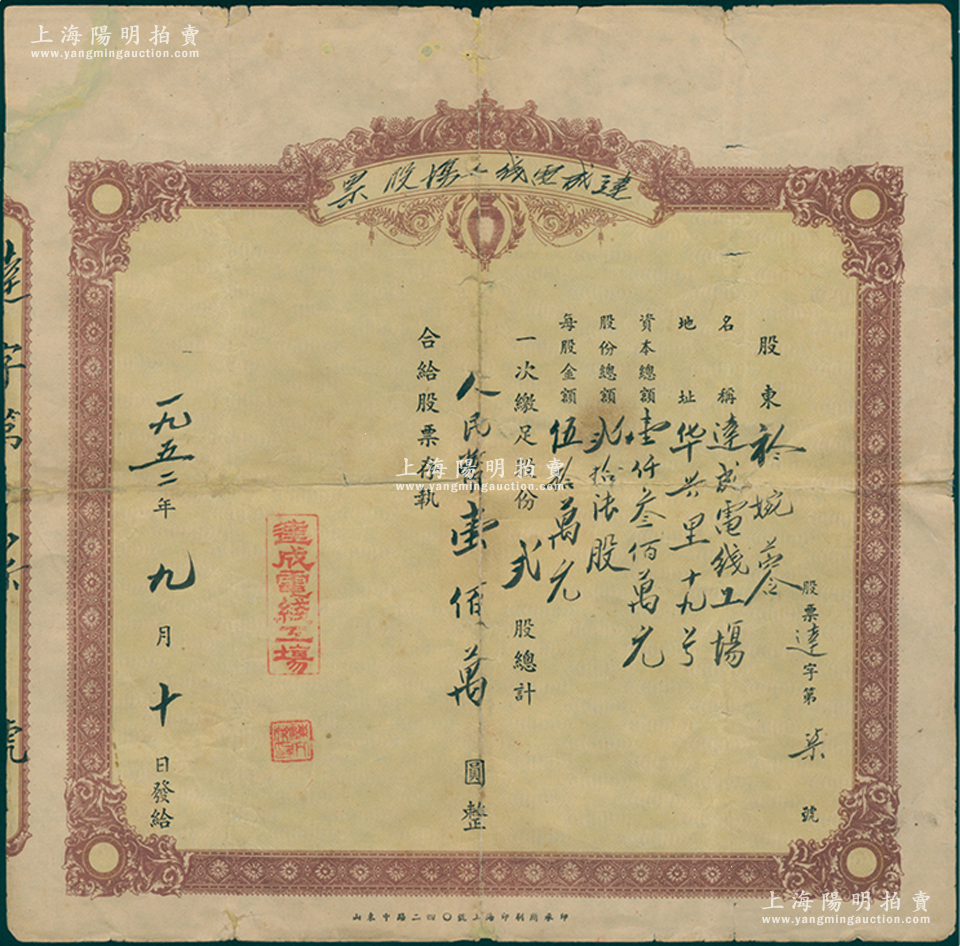 上海陽明拍賣
www.yangmingauction.com
達成電线工場股票
股票達字第柒號
股東 婉蓉
名稱 達成電线工場
地址 华兴里十九号
資本總額 壹仟叁佰萬元
股份總額 弍拾陆股
每股金額 伍拾萬元
一次繳足股份 弍 股總計
人民幣壹佰萬圓整
合給股票存執
一九五二年九月十日發給
達成電綫工場
達字第柒號
上海陽明拍賣
www.yangmingauction.com
山東中路二四〇號上海印刷所承印
上海陽明拍賣
www.yangmingauction.com